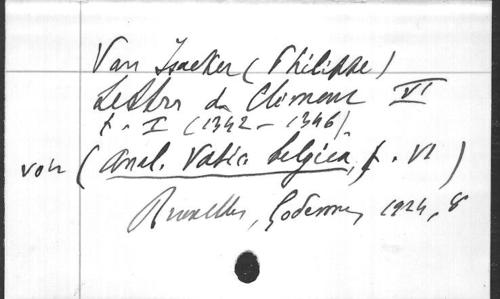 Van Isacker (Philippe)
Lettres de Clément VI
t. I (1342-1346).
voir (Anal. Vatic. belgica, t. VI)
Bruxelles, Godenne, 1924, 8